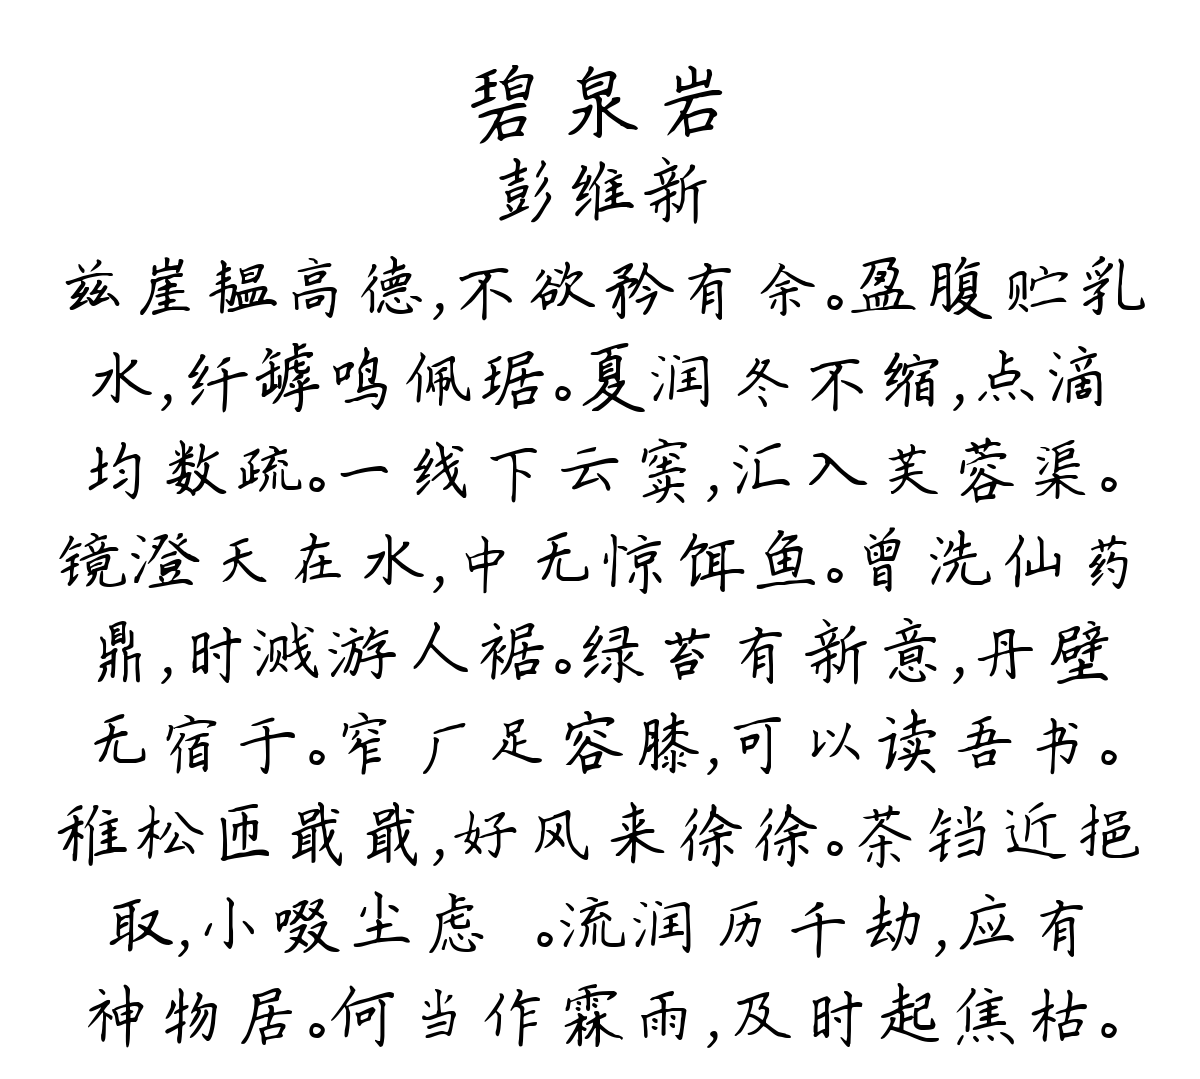 碧泉岩
彭维新
兹崖韫高德,不欲矜有余。盈腹贮乳
水,纤罅鸣佩琚。夏润冬不缩,点滴
均数疏。一线下云窦,汇入芙蓉渠。
镜澄天在水,中无惊饵鱼。曾洗仙药
鼎,时溅游人裾。绿苔有新意,丹壁
无宿于。窄厂足容膝,可以读吾书。
稚松匝戢戢,好风来徐徐。茶铛近挹
取,小啜尘虑 。流润历千劫,应有
神物居。何当作霖雨,及时起焦枯。